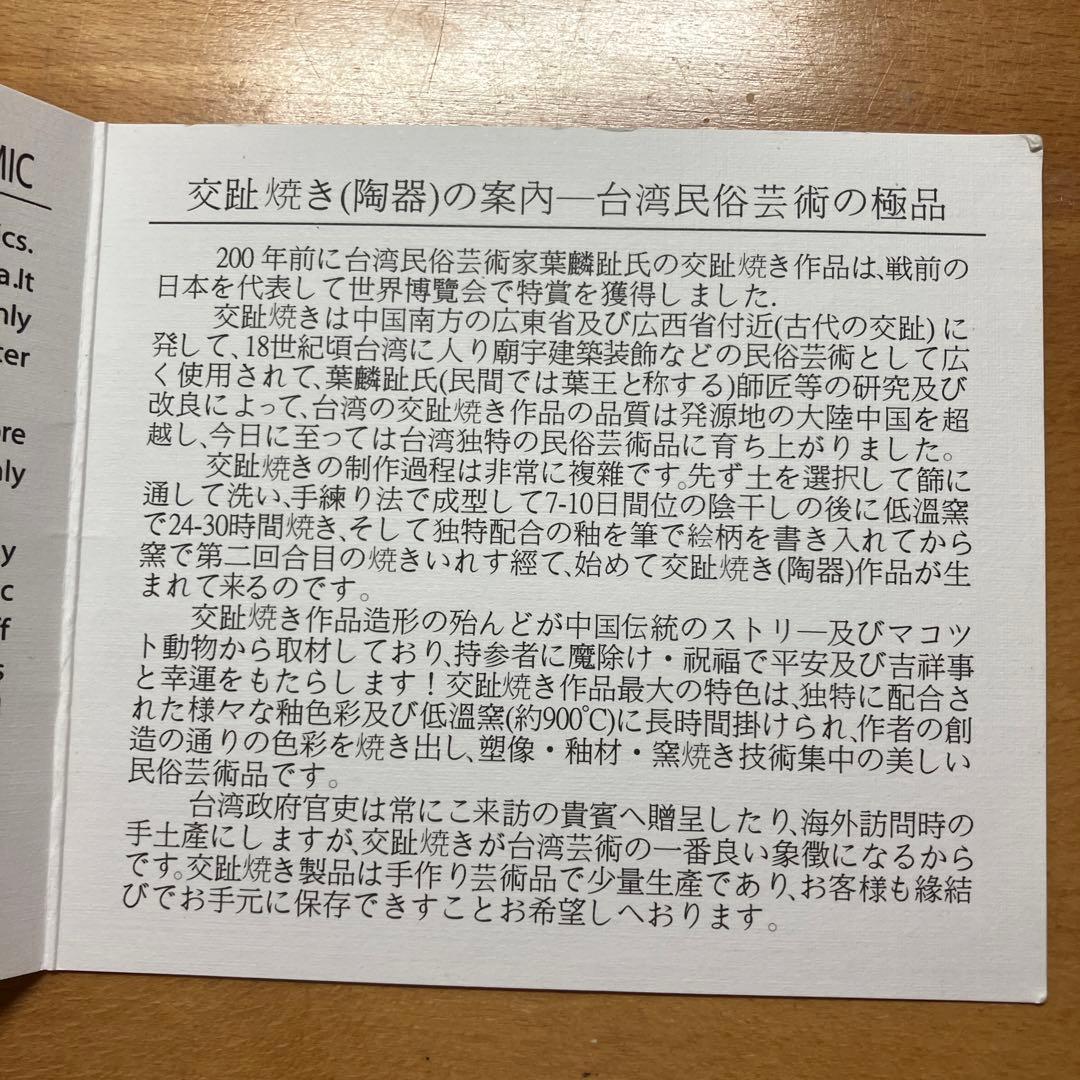 MIC
ics.
a.It
nly
ter
ore
nly
y
c
ff
s
交趾焼き(陶器)の案內—台湾民俗芸術の極品
200 年前に台湾民俗芸術家葉麟趾氏の交趾焼き作品は、戦前の
日本を代表して世界博覽会で特賞を獲得しました.
交趾焼きは中国南方の広東省及び広西省付近(古代の交趾) に
発して、18世紀頃台湾に人り廟宇建築装飾などの民俗芸術として広
く使用されて、葉麟趾氏(民間では葉王と称する)師匠等の研究及び
改良によって、台湾の交趾焼き作品の品質は発源地の大陸中国を超
越し、今日に至っては台湾独特の民俗芸術品に育ち上がりました。
交趾焼きの制作過程は非常に複雜です。先ず土を選択して篩に
通して洗い、手練り法で成型して7-10日間位の陰干しの後に低溫窯
で24-30時間焼き、そして独特配合の釉を筆で絵柄を書き入れてから
窯で第二回合目の焼きいれす經て、始めて交趾焼き(陶器)作品が生
まれて来るのです。
交趾焼き作品造形の殆んどが中国伝統のストリ—及びマコツ
ト動物から取材しており、持参者に魔除け・祝福で平安及び吉祥事
と幸運をもたらします！交趾焼き作品最大の特色は、独特に配合さ
れた様々な釉色彩及び低溫窯(約900℃)に長時間掛けられ、作者の創
造の通りの色彩を焼き出し、塑像・釉材・窯焼き技術集中の美しい
民俗芸術品です。
台湾政府官吏は常にこ来訪の貴賓へ贈呈したり、海外訪問時の
手土產にしますが、交趾焼きが台湾芸術の一番良い象徴になるから
です。交趾焼き製品は手作り芸術品で少量生產であり、お客様も緣結
びでお手元に保存できすことお希望しへおります。